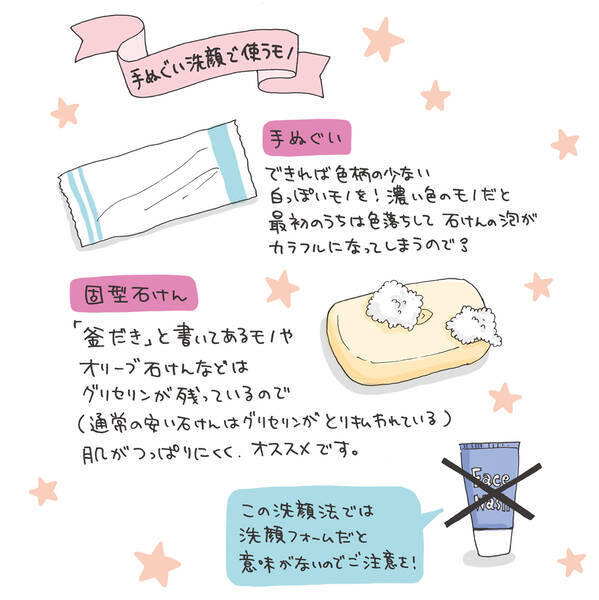 手ぬぐい洗顔で使うモノ
手ぬぐい
できれば色柄の少ない
白っぽいモノを！濃い色のモノだと
最初のうちは色落ちして石けんの泡が
カラフルになってしまうので？
固型石けん
「釜だき」と書いてあるモノや
オリーブ石けんなどは
グリセリンが残っているので
（通常の安い石けんはグリセリンがとりのぞかれている）
肌がつっぱりにくく、オススメです。
Face
Wash
この洗顔法では
洗顔フォームだと
意味がないのでご注意を！